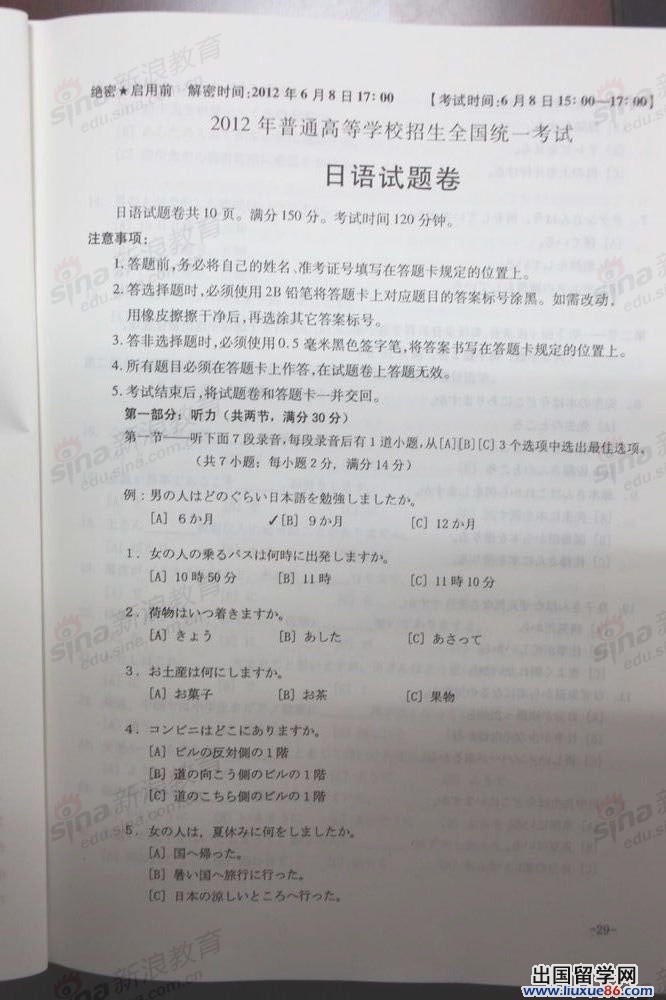 绝密★启用前 解密时间:2012年6月8日17:00 【考试时间:6月8日15:00—17:00】
2012年普通高等学校招生全国统一考试
日语试题卷
日语试题卷共10页。满分150分。考试时间120分钟。
注意事项:
1. 答题前,务必将自己的姓名、准考证号填写在答题卡规定的位置上。
2. 答选择题时,必须使用2B铅笔将答题卡上对应题目的答案标号涂黑。如需改动,
用橡皮擦擦干净后,再选涂其它答案标号。
3. 答非选择题时,必须使用0.5毫米黑色签字笔,将答案书写在答题卡规定的位置上。
4. 所有题目必须在答题卡上作答,在试题卷上答题无效。
5. 考试结束后,将试题卷和答题卡一并交回。
第一部分:听力(共两节,满分30分)
第一节——听下面7段录音,每段录音后有1道小题,从[A][B][C]3个选项中选出最佳选项。
(共7小题;每小题2分,满分14分)
例:男の人はどのぐらい日本語を勉強しましたか。
[A] 6か月 ✓[B] 9か月 [C] 12か月
1. 女の人の乗るバスは何時に出発しますか。
[A] 10時50分 [B] 11時 [C] 11時10分
2. 荷物はいつ着きますか。
[A] きょう [B] あした [C] あさって
3. お土産は何にしますか。
[A] お菓子 [B] お茶 [C] 果物
4. コンビニはどこにありますか。
[A] ビルの反対側の1階
[B] 道の向こう側のビルの1階
[C] 道のこちら側のビルの1階
5. 女の人は,夏休みに何をしましたか。
[A] 国へ帰った。
[B] 暑い国へ旅行に行った。
[C] 日本の涼しいところへ行った。
-29-
sina新浪教育
edu.sina.com.cn
出国留学网
www.liuxue86.com